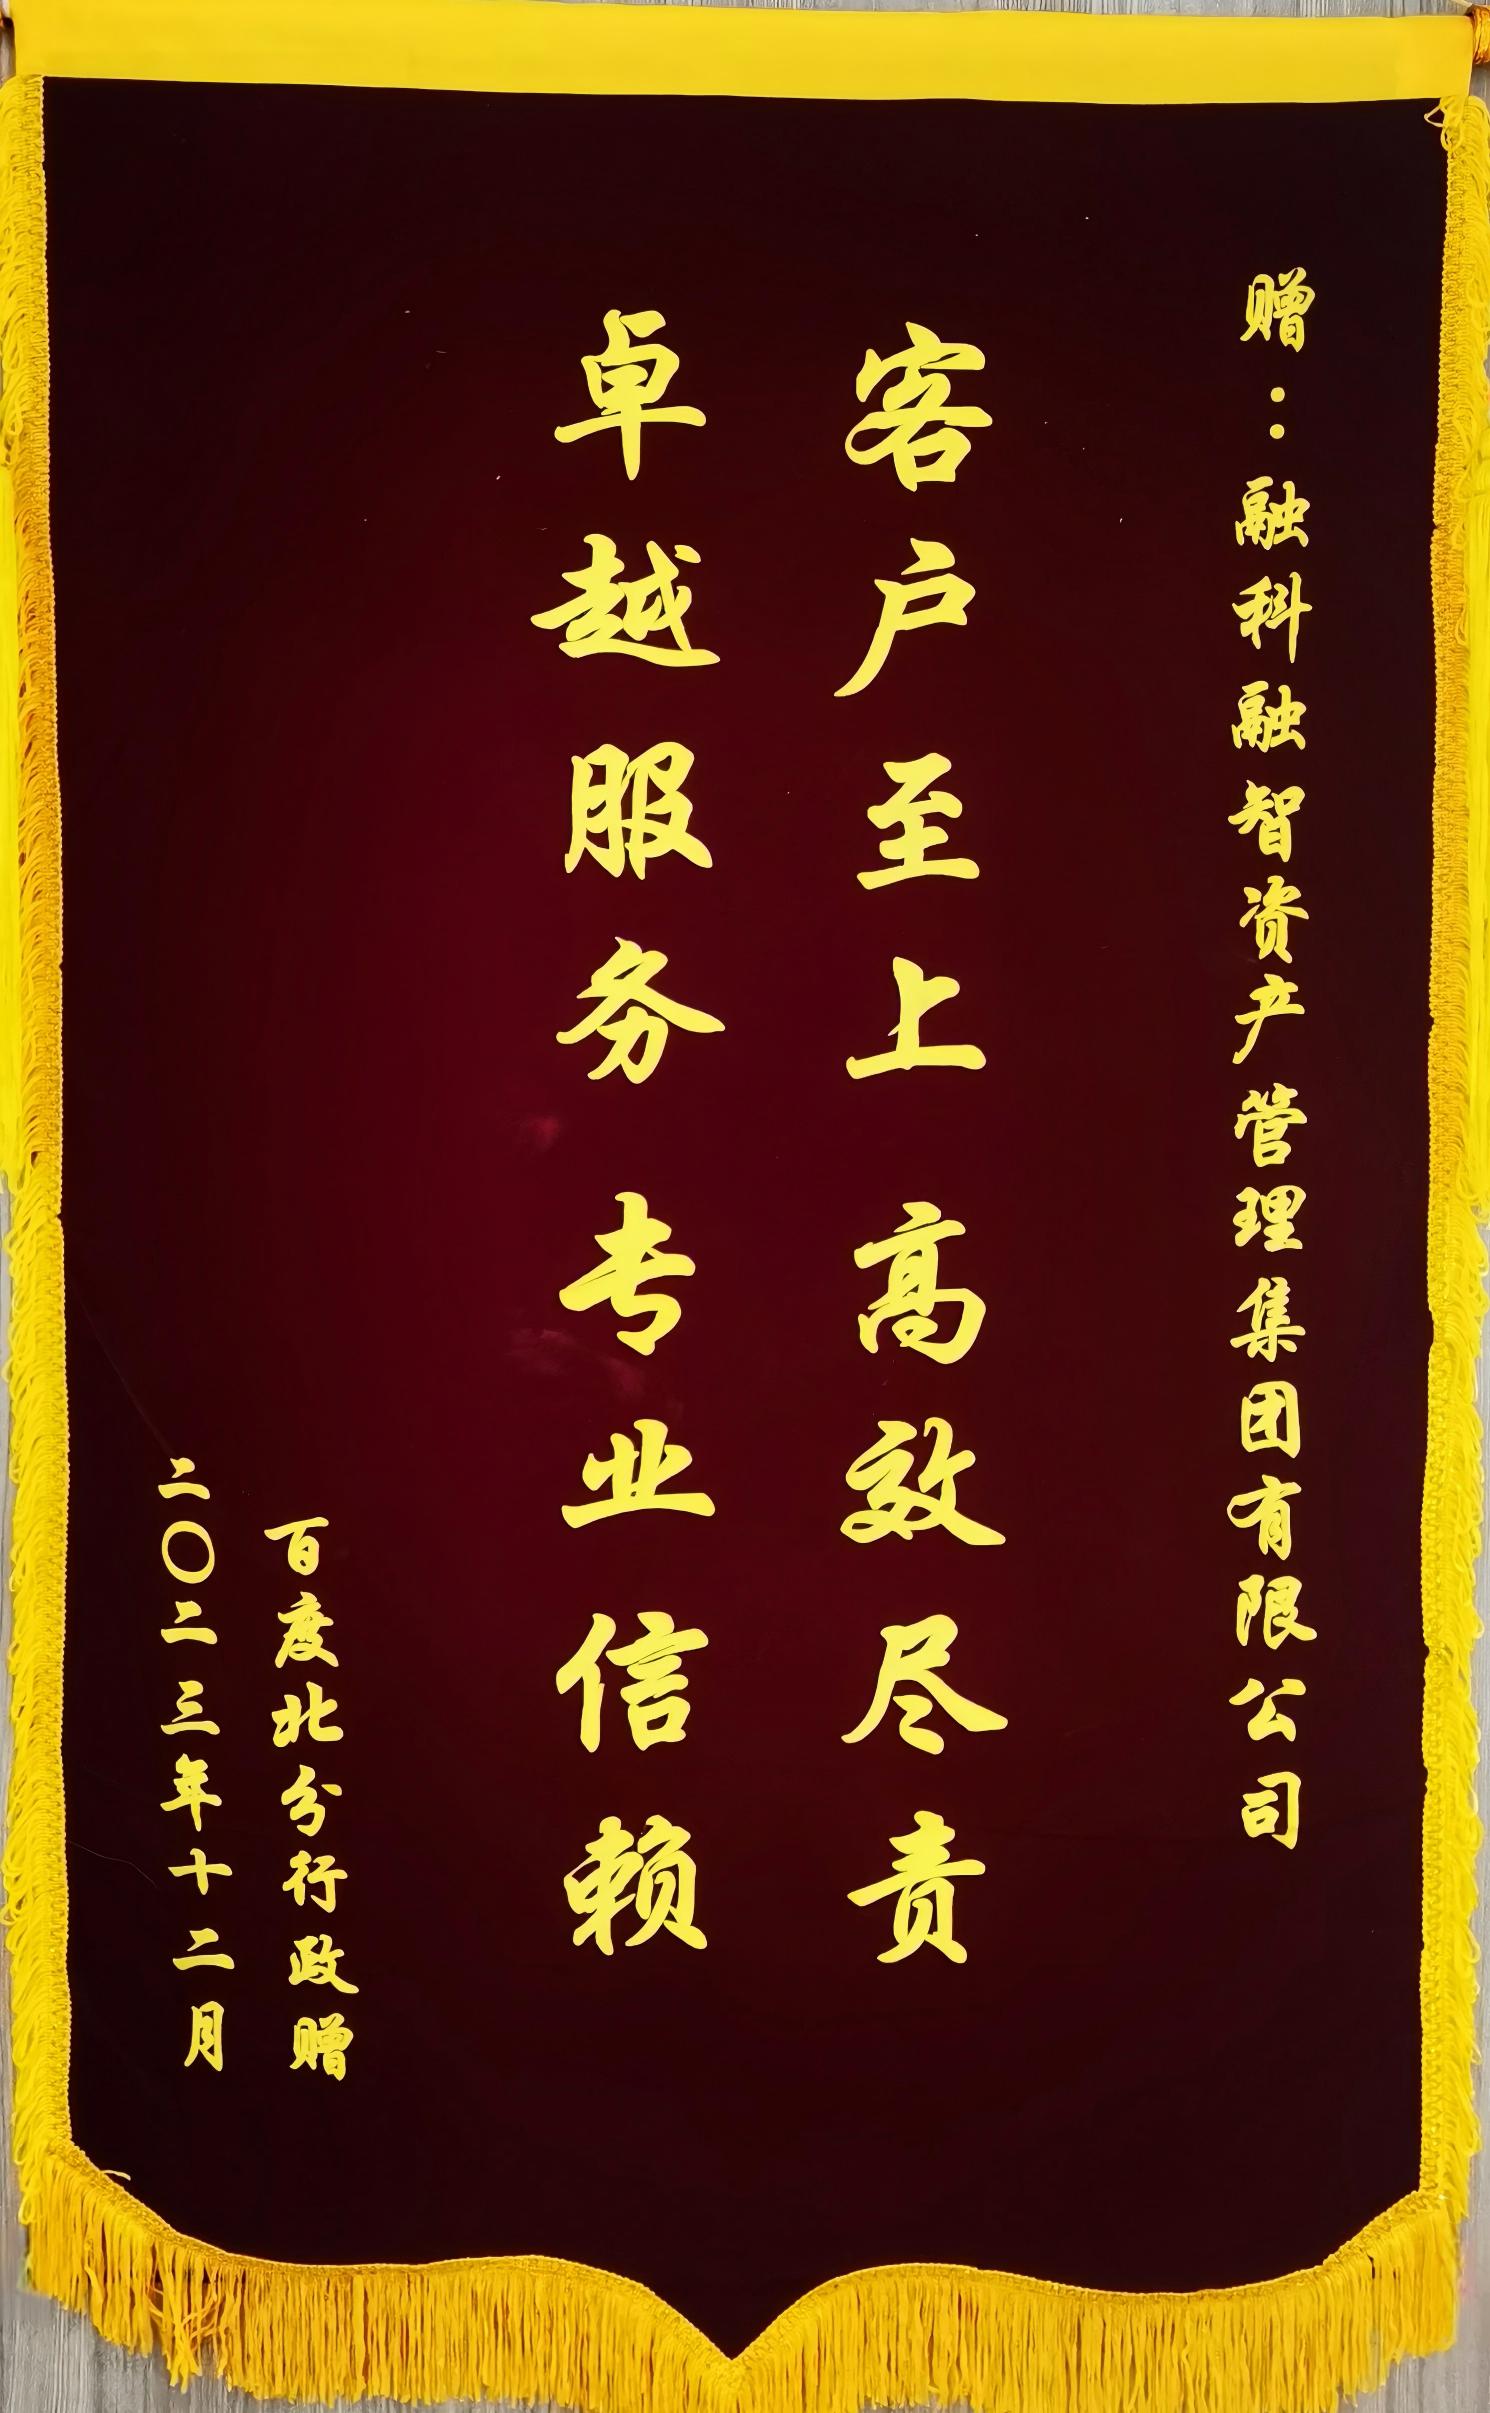 赠：融科融智资产管理集团有限公司
客户至上高效尽责
卓越服务专业信赖
百度北分行政赠
二〇二三年十二月